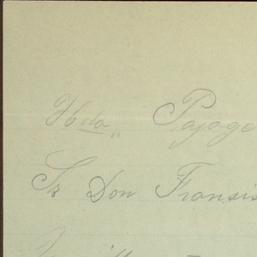 Hda, Payogo
Sr Don Fransis